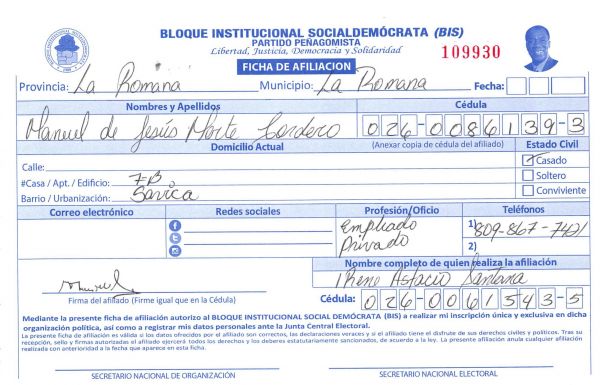 BLOQUE INSTITUCIONAL SOCIALDEMÓCRATA (BIS)
PARTIDO PEÑAGOMISTA
Libertad, Justicia, Democracia y Solidaridad
109930
FICHA DE AFILIACION
Provincia: La Romana Municipio: La Romana Fecha:
Nombres y Apellidos Cédula
Manuel de Jesús Morte Cordero 026-0086139-3
Domicilio Actual (Anexar copia de cédula del afiliado) Estado Civil
Calle: Casado
#Casa / Apt. / Edificio: 7-B Soltero
Barrio / Urbanización: Savica Conviviente
Correo electrónico Redes sociales Profesión/Oficio Teléfonos
Empliado 1) 809-867-7421
Privado 2)
Nombre completo de quien realiza la afiliación
Irene Asfacio Santana
Firma del afiliado (Firme igual que en la Cédula) Cédula: 026-0061543-5
Mediante la presente ficha de afiliación autorizo al BLOQUE INSTITUCIONAL SOCIAL DEMÓCRATA (BIS) a realizar mi inscripción única y exclusiva en dicha
organización política, así como a registrar mis datos personales ante la Junta Central Electoral.
La presente ficha de afiliación es válida si los datos ofrecidos por el afiliado son correctos, las declaraciones veraces y si el afiliado tiene el disfrute de sus derechos civiles y políticos. Tras su
recepción, sello y firmas autorizadas el afiliado ejercerá todos los derechos y los deberes estatutariamente sancionados, de acuerdo a la ley. La presente afiliación anula cualquier afiliación
realizada con anterioridad a la fecha que aparece en esta ficha.
SECRETARIO NACIONAL DE ORGANIZACIÓN SECRETARIO NACIONAL ELECTORAL